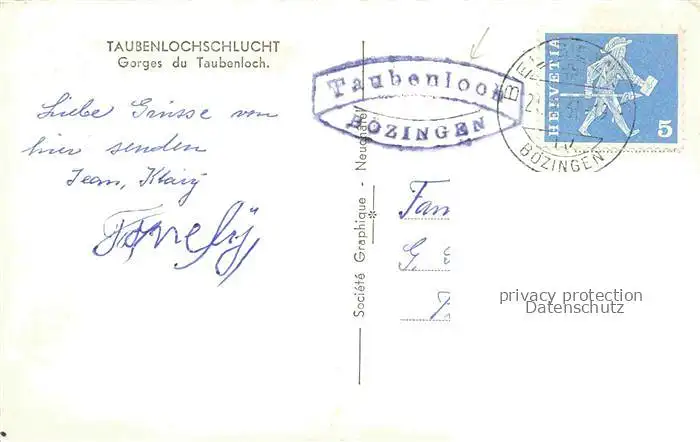 TAUBENLOCHSCHLUCHT
Gorges du Taubenloch.
Liebe Grüsse von
hier senden
Jean, Kläry
Société Graphique - Neuchâtel
Taubenloch
BÖZINGEN
BIEL
BÖZINGEN
HELVETIA
5
Fam
G.
privacy protection
Datenschutz